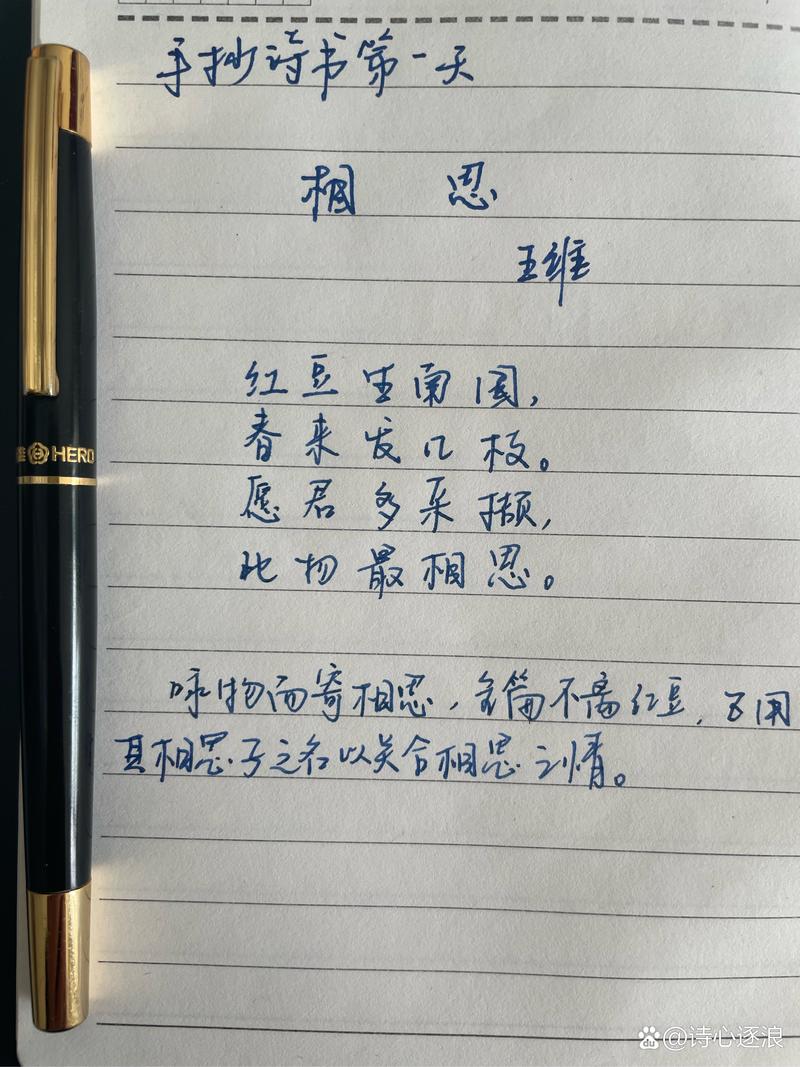 手抄诗书第一天
相思
王维
红豆生南国,
春来发几枝。
愿君多采撷,
此物最相思。
咏物而寄相思,全篇不离红豆,巧用
其相思子之名以关合相思之情。
HERO
@诗心逐浪